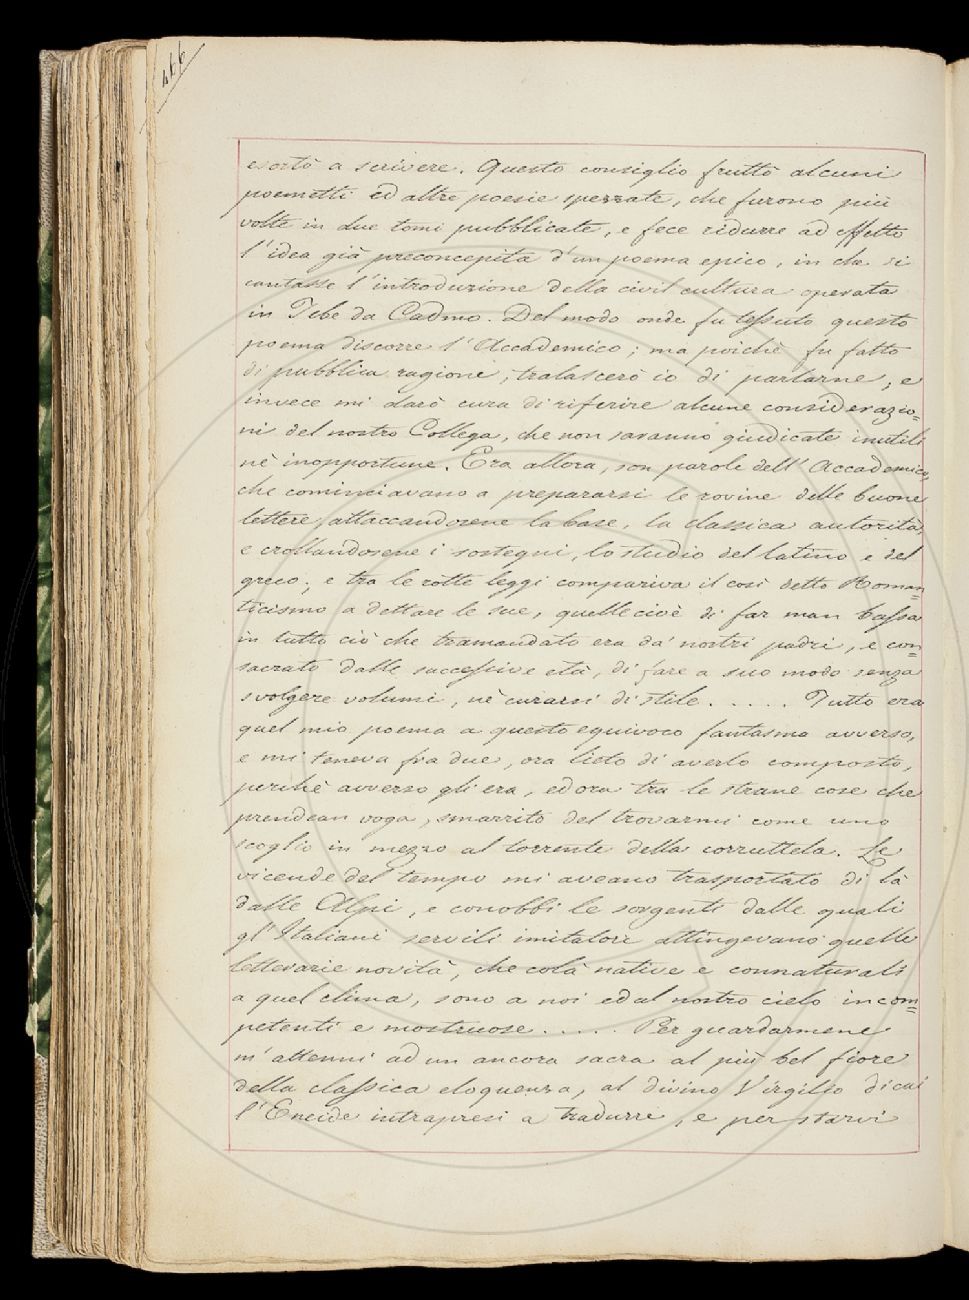 466
esortò a scrivere. Questo consiglio fruttò alcuni
poemetti ed altre poesie spezzate, che furono più
volte in due tomi pubblicate, e fece ridurre ad effetto
l'idea già preconcepita d'un poema epico, in che si
cantasse l'introduzione della civil cultura operata
in Tebe da Cadmo. Del modo onde fu tessuto questo
poema discorre l'Accademico; ma poichè fu fatto
di pubblica ragione, tralascerò io di parlarne, e
invece mi darò cura di riferire alcune considerazio=
ni del nostro Collega, che non saranno giudicate inutili
nè inopportune. Era allora, son parole dell'Accademico,
che cominciavano a prepararsi le rovine delle buone
lettere, attaccandosene la base, la classica autorità,
e crollandosene i sostegni, lo studio del latino e del
greco; e tra le rotte leggi compariva il così detto Roman=
ticismo a dettare le sue, quelle cioè di far man bassa
in tutto ciò che tramandato era da' nostri padri, e con=
sacrato dalle successive età, di fare a suo modo senza
svolgere volumi, nè curarsi di stile. . . . . Tutto era
quel mio poema a questo equivoco fantasma avverso,
e mi teneva fra due, ora lieto di averlo composto,
perchè avverso gli era, ed ora tra le strane cose che
prendean voga, smarrito del trovarmi come uno
scoglio in mezzo al torrente della corruttela. Le
vicende del tempo mi aveano trasportato di là
dalle Alpi, e conobbi le sorgenti dalle quali
gl'Italiani servili imitatori attingevano quelle
letterarie novità, che colà native e connaturali
a quel clima, sono a noi ed al nostro cielo incom=
petenti e mostruose. . . . . Per guardarmene
m'attenni ad un ancora sacra al più bel fiore
della classica eloquenza, al divino Virgilio di cui
l'Eneide intrapresi a tradurre, e per starvi